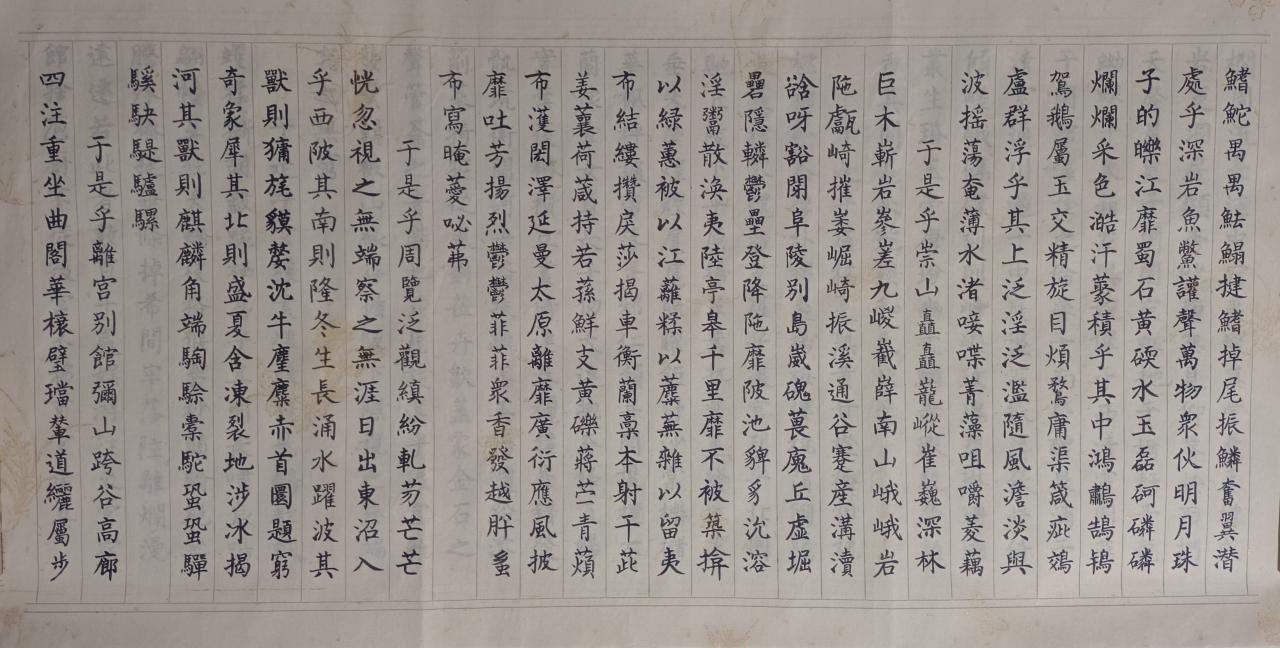 鰭鮀禺禺魼鰨揵鰭掉尾振鱗奮翼潛
處乎深岩魚鱉讙聲萬物衆伙明月珠
子的皪江靡蜀石黃碝水玉磊砢磷磷
爛爛采色澔汗藂積乎其中鴻鷫鵠鴇
鴐鵝屬玉交精旋目煩鶩庸渠箴疵鵁
盧群浮乎其上泛淫泛濫隨風澹淡與
波搖蕩奄薄水渚唼喋菁藻咀嚼菱藕
于是乎崇山矗矗巃嵷崔巍深林
巨木嶄岩參差九嵕嶻嶭南山峨峨岩
陁甗崎摧崣崛崎振溪通谷蹇產溝瀆
谽呀豁閜阜陵別島崴磈葨廆丘虛堀
礨隱轔鬱壘登降陁靡陂池貏豸沇溶
淫鬻散渙夷陸亭皋千里靡不被築揜
以綠蕙被以江蘺糅以蘪蕪雜以留夷
布結縷攢戾莎揭車衡蘭稾本射干茈
姜蘘荷葴持若蓀鮮支黃礫蔣芒青薠
布濩閎澤延曼太原離靡廣衍應風披
靡吐芳揚烈鬱鬱菲菲衆香發越肸蚃
布寫晻薆咇茀
于是乎周覽泛觀縝紛軋芴芒芒
恍忽視之無端察之無涯日出東沼入
乎西陂其南則隆冬生長涌水躍波其
獸則㺎旄貘嫠沈牛麈麋赤首圜題窮
奇象犀其北則盛夏含凍裂地涉冰揭
河其獸則麒麟角端騊駼橐駝蛩蛩驒
騱駃騠驢騾
于是乎離宮別館彌山跨谷高廊
四注重坐曲閣華榱璧璫輦道纚屬步